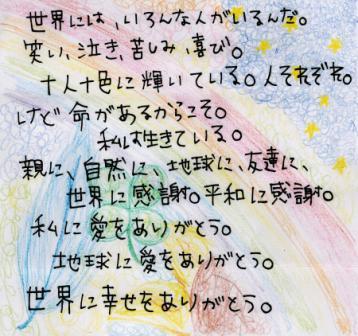 世界には、いろんな人がいるんだ。
笑い、泣き、苦しみ、喜び。
十人十色に輝いている。人それぞれ。
けど 命があるからこそ。
私は生きている。
親に、自然に、地球に、友達に、
世界に感謝。平和に感謝。
私に愛をありがとう。
地球に愛をありがとう。
世界に幸せをありがとう。